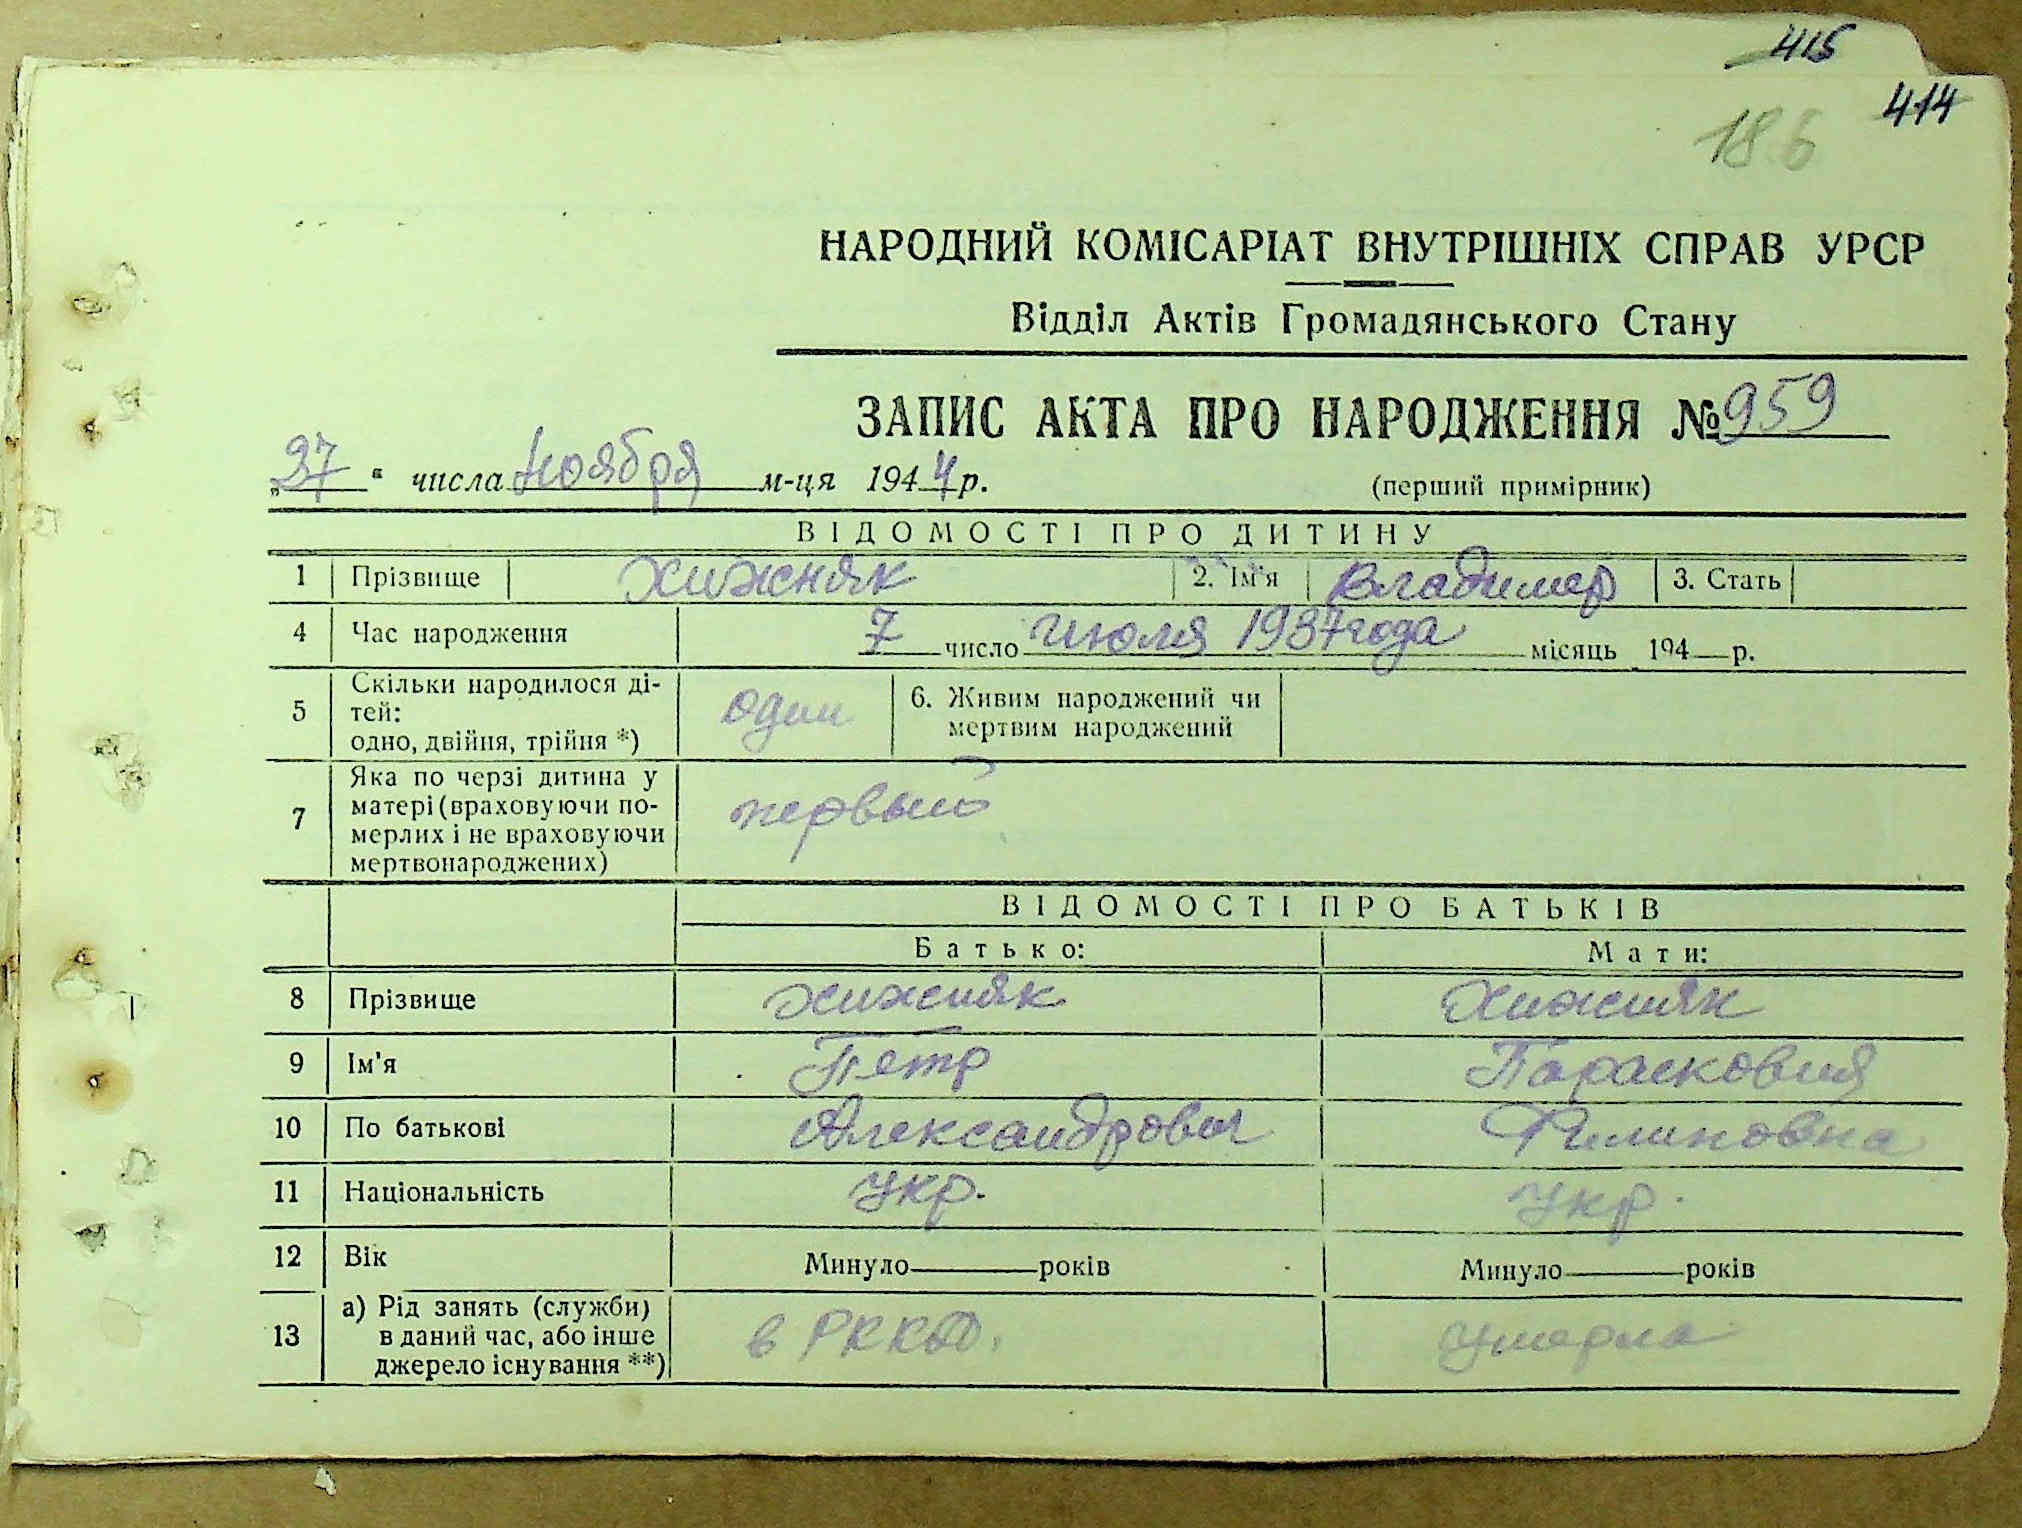 415
414
186
НАРОДНИЙ КОМІСАРІАТ ВНУТРІШНІХ СПРАВ УРСР
Відділ Актів Громадянського Стану
ЗАПИС АКТА ПРО НАРОДЖЕННЯ № 959
„27“ числа Ноября м-ця 1944 р. (перший примірник)
ВІДОМОСТІ ПРО ДИТИНУ
1 Прізвище Хижняк 2. Ім'я Владимер 3. Стать
4 Час народження 7 число Июля 1937 года місяць 194 р.
5 Скільки народилося ді-
тей:
одно, двійня, трійня *) один 6. Живим народжений чи
мертвим народжений
7 Яка по черзі дитина у
матері (враховуючи по-
мерлих і не враховуючи
мертвонароджених) первый
ВІДОМОСТІ ПРО БАТЬКІВ
Батько: Мати:
8 Прізвище Хижняк Хижняк
9 Ім'я Петр Парасковия
10 По батькові Александрович Филиповна
11 Національність укр. укр.
12 Вік Минуло років Минуло років
13 а) Рід занять (служби)
в даний час, або інше
джерело існування **) в РККА. умерла